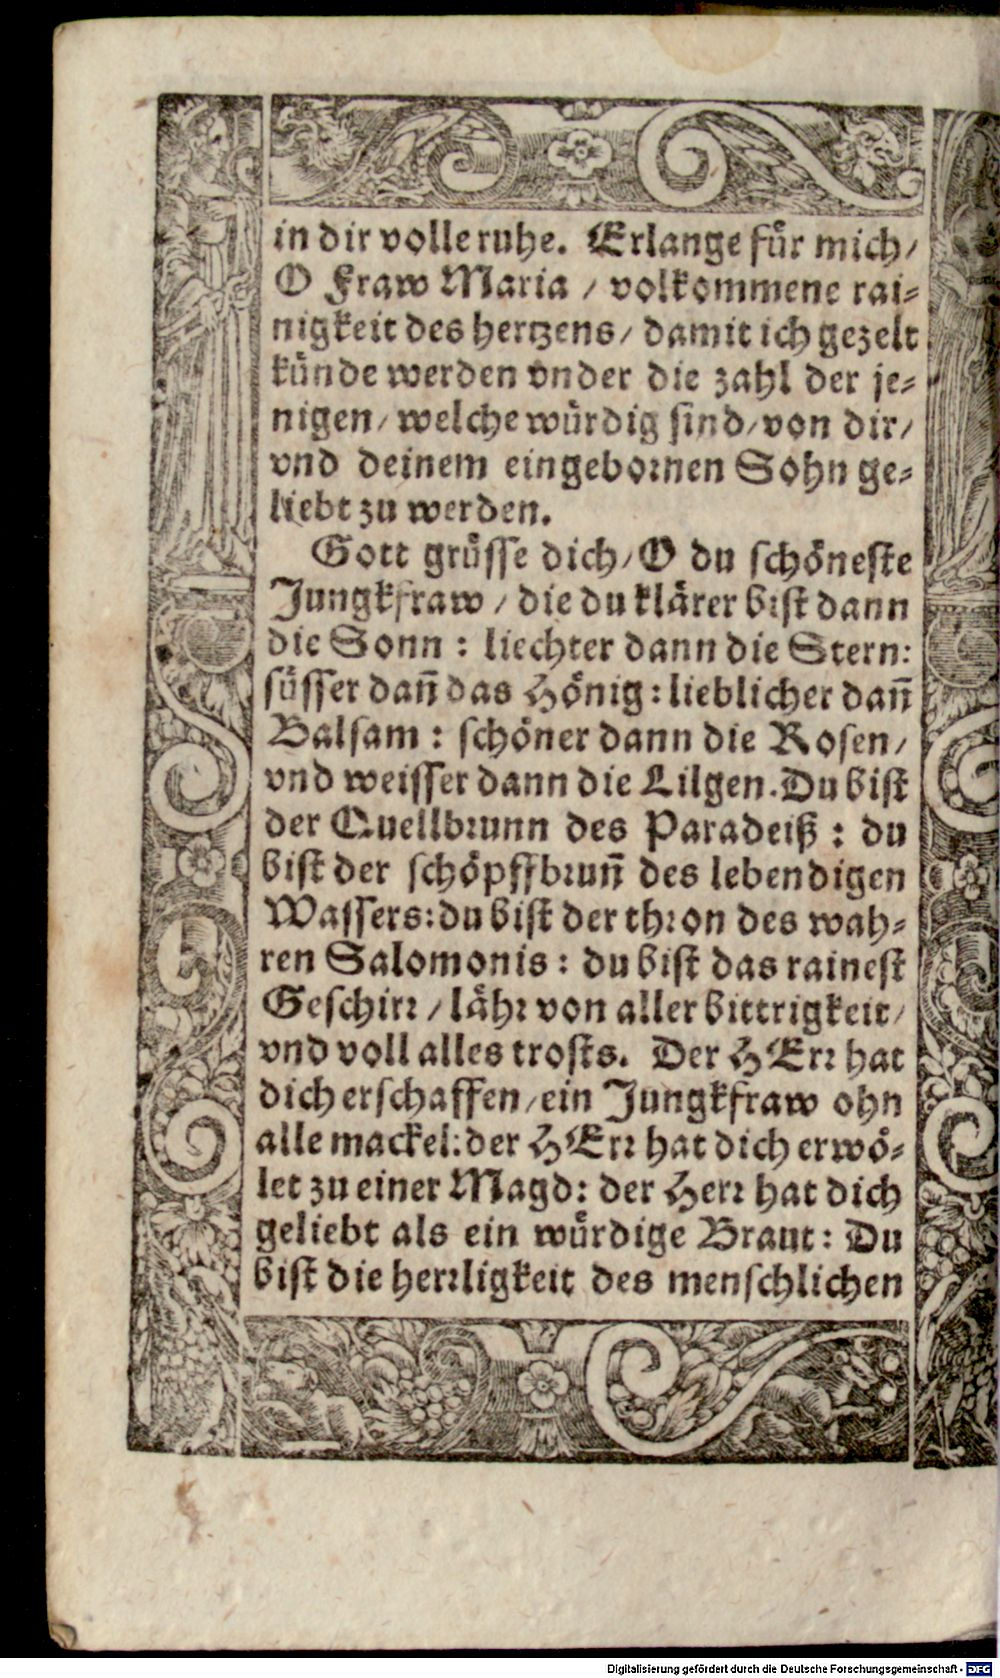 in dir volle ruhe. Erlange für mich/
O Fraw Maria / volkommene rai⸗
nigkeit des hertzens/ damit ich gezelt
künde werden vnder die zahl der je⸗
nigen/ welche würdig sind/ von dir/
vnd deinem eingebornen Sohn ge⸗
liebt zu werden.
Gott grüsse dich/ O du schöneste
Jungkfraw / die du klärer bist dann
die Sonn : liechter dann die Stern:
süsser dañ das Hönig : lieblicher dañ
Balsam : schöner dann die Rosen/
vnd weisser dann die Lilgen. Du bist
der Quellbrunn des Paradeiß : du
bist der schöpffbruñ des lebendigen
Wassers: du bist der thron des wah⸗
ren Salomonis : du bist das rainest
Geschirr / lähr von aller bittrigkeit/
vnd voll alles trosts. Der HErr hat
dich erschaffen/ ein Jungkfraw ohn
alle mackel: der HErr hat dich erwö⸗
let zu einer Magd: der Herr hat dich
geliebt als ein würdige Braut: Du
bist die herrligkeit des menschlichen
Digitalisierung gefördert durch die Deutsche Forschungsgemeinschaft - DFG